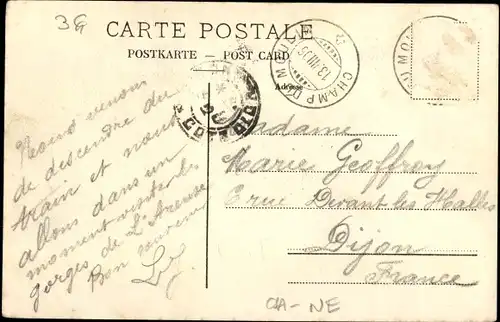 3G
CARTE POSTALE
POSTKARTE — POST CARD
Adresse
CHAMP DU MOULIN
13.VIII.05
DU MO
DIJON
Nous venons
de descendre du
train et nous
allons dans un
moment visiter les
gorges de L'Areuse
Bon souvenir
Madame
Marie Geoffroy
rue Devant les Halles
Dijon
France
CA - NE